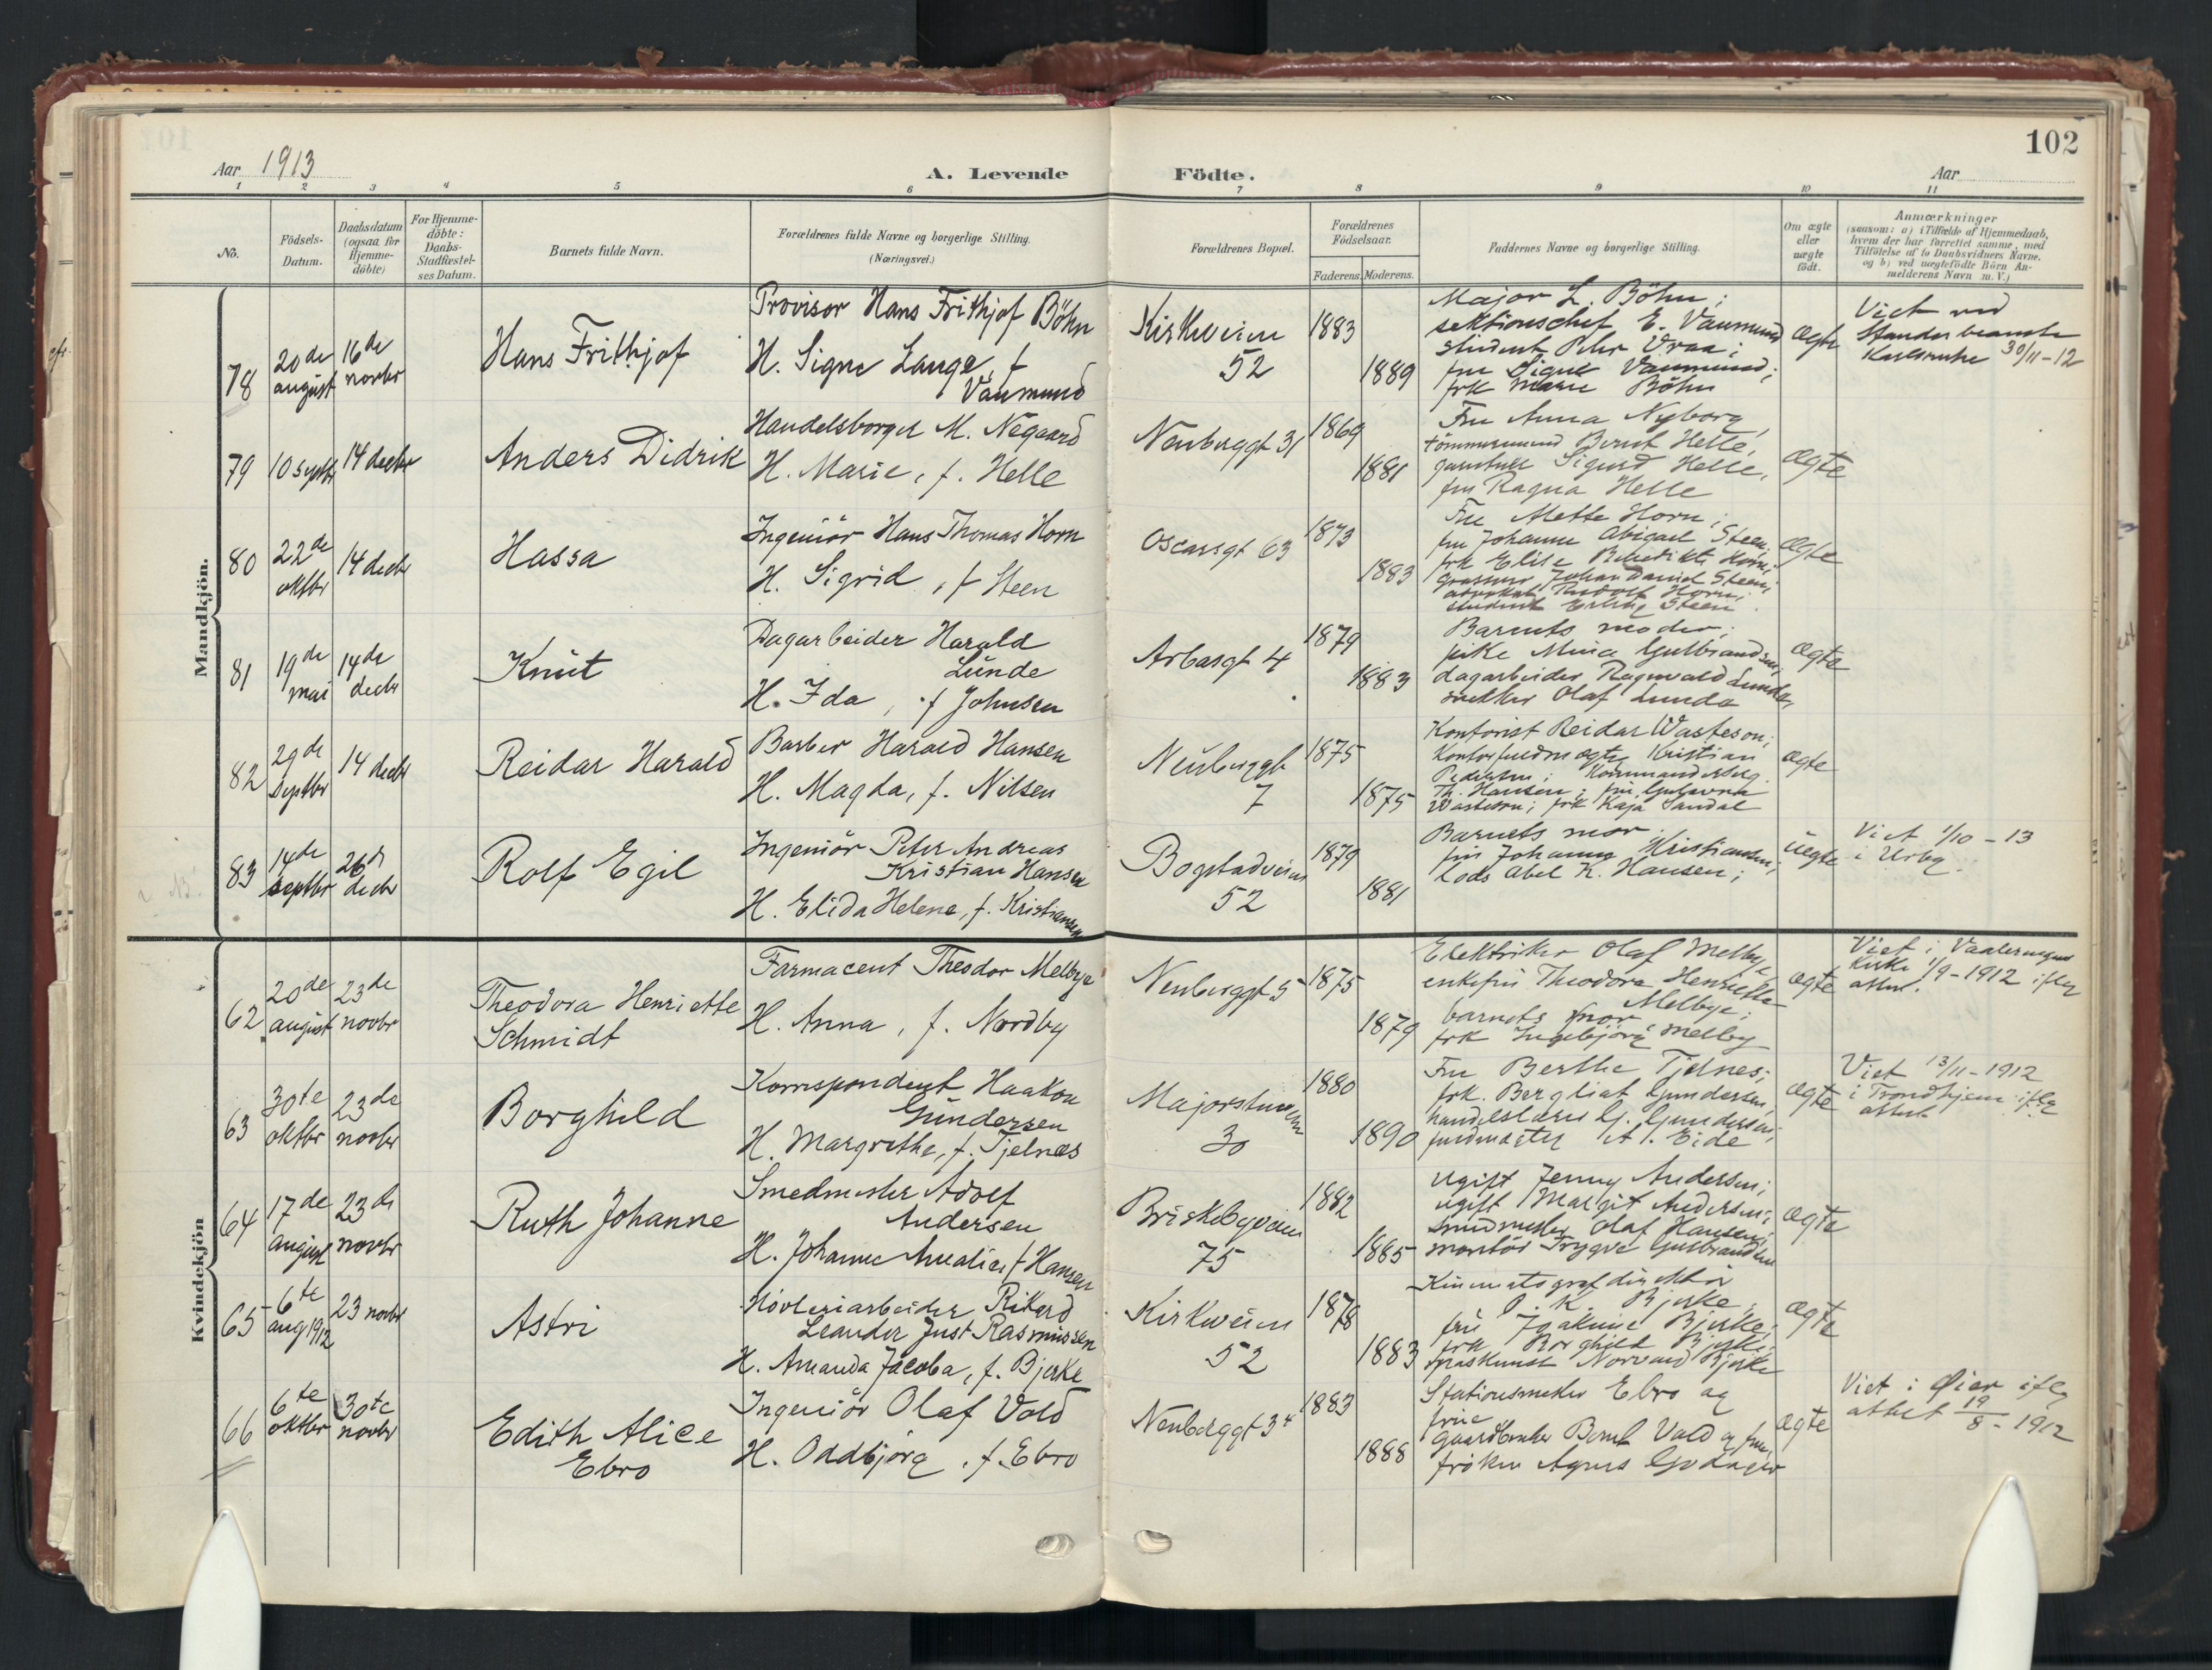 102
Aar 1913
A. Levende Födte.
Aar
1 2 3 4 5 6 7 8 9 10 11
No.
Födsels-
Datum.
Daabsdatum
(ogsaa for
Hjemme-
döbte)
For Hjemme-
döbte:
Daabs-
Stadfæstel-
ses Datum.
Barnets fulde Navn.
Forældrenes fulde Navne og borgerlige Stilling.
(Næringsvei.)
Forældrenes Bopæl.
Forældrenes
Födselsaar.
Faderens. Moderens.
Faddernes Navne og borgerlige Stilling.
Om ægte
eller
uægte
födt.
Anmærkninger
(saasom: a) i Tilfælde af Hjemmedaab,
hvem der har forrettet samme, med
Tilföielse af to Daabsvidners Navne.
og b) ved uægtefödte Börn An-
melderens Navn m. V.)
Mandkjön.
78
20de
august
16de
novbr
Hans Frithjof
Provisor Hans Frithjof Böhn
H. Signe Lange, f
Vaumund
Kirkeveien
52
1883
1889
Major L. Böhn;
sektionschef E. Vaumund
student Peter Vraa;
fru Signe Vaumund;
frk Marie Böhn
ægte
Viet ved
Standesbeamte
Karlsruhe 30/11-12
79
10 septbr
14 decbr
Anders Didrik
Handelsborger M. Negaard
H. Marie, f. Helle
Neuberggt 31
1869
1881
Fru Anna Nyborg,
tömmermand Bernt Helle,
Sigurd Helle,
fru Ragna Helle
ægte
80
22de
oktbr
14 decbr
Hassa
Ingeniör Hans Thomas Horn
H. Sigrid, f Steen
Oscarsgt 63
1873
1883
Fru Mette Horn;
fru Johanne Abigael Steen;
frk Elise Benedikte Horn;
grosserer Johan Daniel Steen;
advokat Rudolf Horn;
student Erling Steen
ægte
81
19de
mai
14de
decbr
Knut
Dagarbeider Harald
Lunde
H. Ida, f Johnsen
Arbosgt 4
1879
1883
Barnets moder;
pike Mina Gulbrandsen;
dagarbeider Ragnvald Lunde,
snekker Olaf Lunde
ægte
82
29de
Septbr
14 decbr
Reidar Harald
Barber Harald Hansen
H. Magda, f. Nilsen
Neuberggt
7
1875
1875
Kontorist Reidar Wasteson;
Kontorfuldmægtig Kristian
Pedersen; Kommanderserg.
Th. Hansen; fru Gustavna
Wasteson; frk Kaja Sandal
ægte
83
14de
septbr
26de
decbr
Rolf Egil
Ingeniör Peter Andreas
Kristian Hansen
H. Elida Helene, f. Kristiansen
Bogstadveien
52
1879
1881
Barnets mor
fru Johanne Kristiansen;
lods Abel K. Hansen;
uegte
Viet 1/10-13
i Urby.
Kvindekjön
62
20de
august
23de
novbr
Theodora Henriette
Schmidt
Farmaceut Theodor Melbye
H. Anna, f. Nordby
Neuberggt 5
1875
1879
Elektriker Olaf Melbye
enkefru Theodora Henriette
Melbye;
barnets mor
frk Ingebjörg Melby
ægte
Viet i Vaalerengens
Kirke 1/9-1912 iflg
attest.
63
30te
oktbr
23de
novbr
Borghild
Korrespondent Haakon
Gundersen
H. Margrethe, f. Tjelnes
Majorstuveien
30
1880
1890
Fru Berthe Tjelnes;
frk. Bergliot Gundersen,
handelslærer G. Gundersen;
fuldmægtig A. Eide
ægte
Viet 13/11-1912
i Trondhjem iflg
attest
64
17de
august
23de
novbr
Ruth Johanne
Smedmester Adolf
Andersen
H. Johanne Amalie, f Hansen
Briskebyveien
75
1882
1885
Ugift Jenny Andersen;
ugift Margit Andersen;
smedmester Olaf Hansen;
montör Trygve Gulbrandsen
ægte
65
6te
aug 1912
23 novbr
Astri
Hövleriarbeider Rikard
Leander Just Rasmussen
H. Amanda Jacoba, f. Bjerke
Kirkeveien
52
1878
1883
Kinematografdirektör
O. K. Bjerke;
fru Joakime Bjerke;
frk Borghild Bjerke;
Norvard Bjerke
ægte
66
6te
oktbr
30te
novbr
Edith Alice
Ebro
Ingeniör Olaf Vold
H. Oddbjörg, f. Ebro
Neuberggt 34
1883
1888
Stationsmester Ebro og
frue
gaardbruker Bernt Vold og frue,
fröken Agnes Godager
ægte
Viet i Öier iflg
attest 19/8-1912